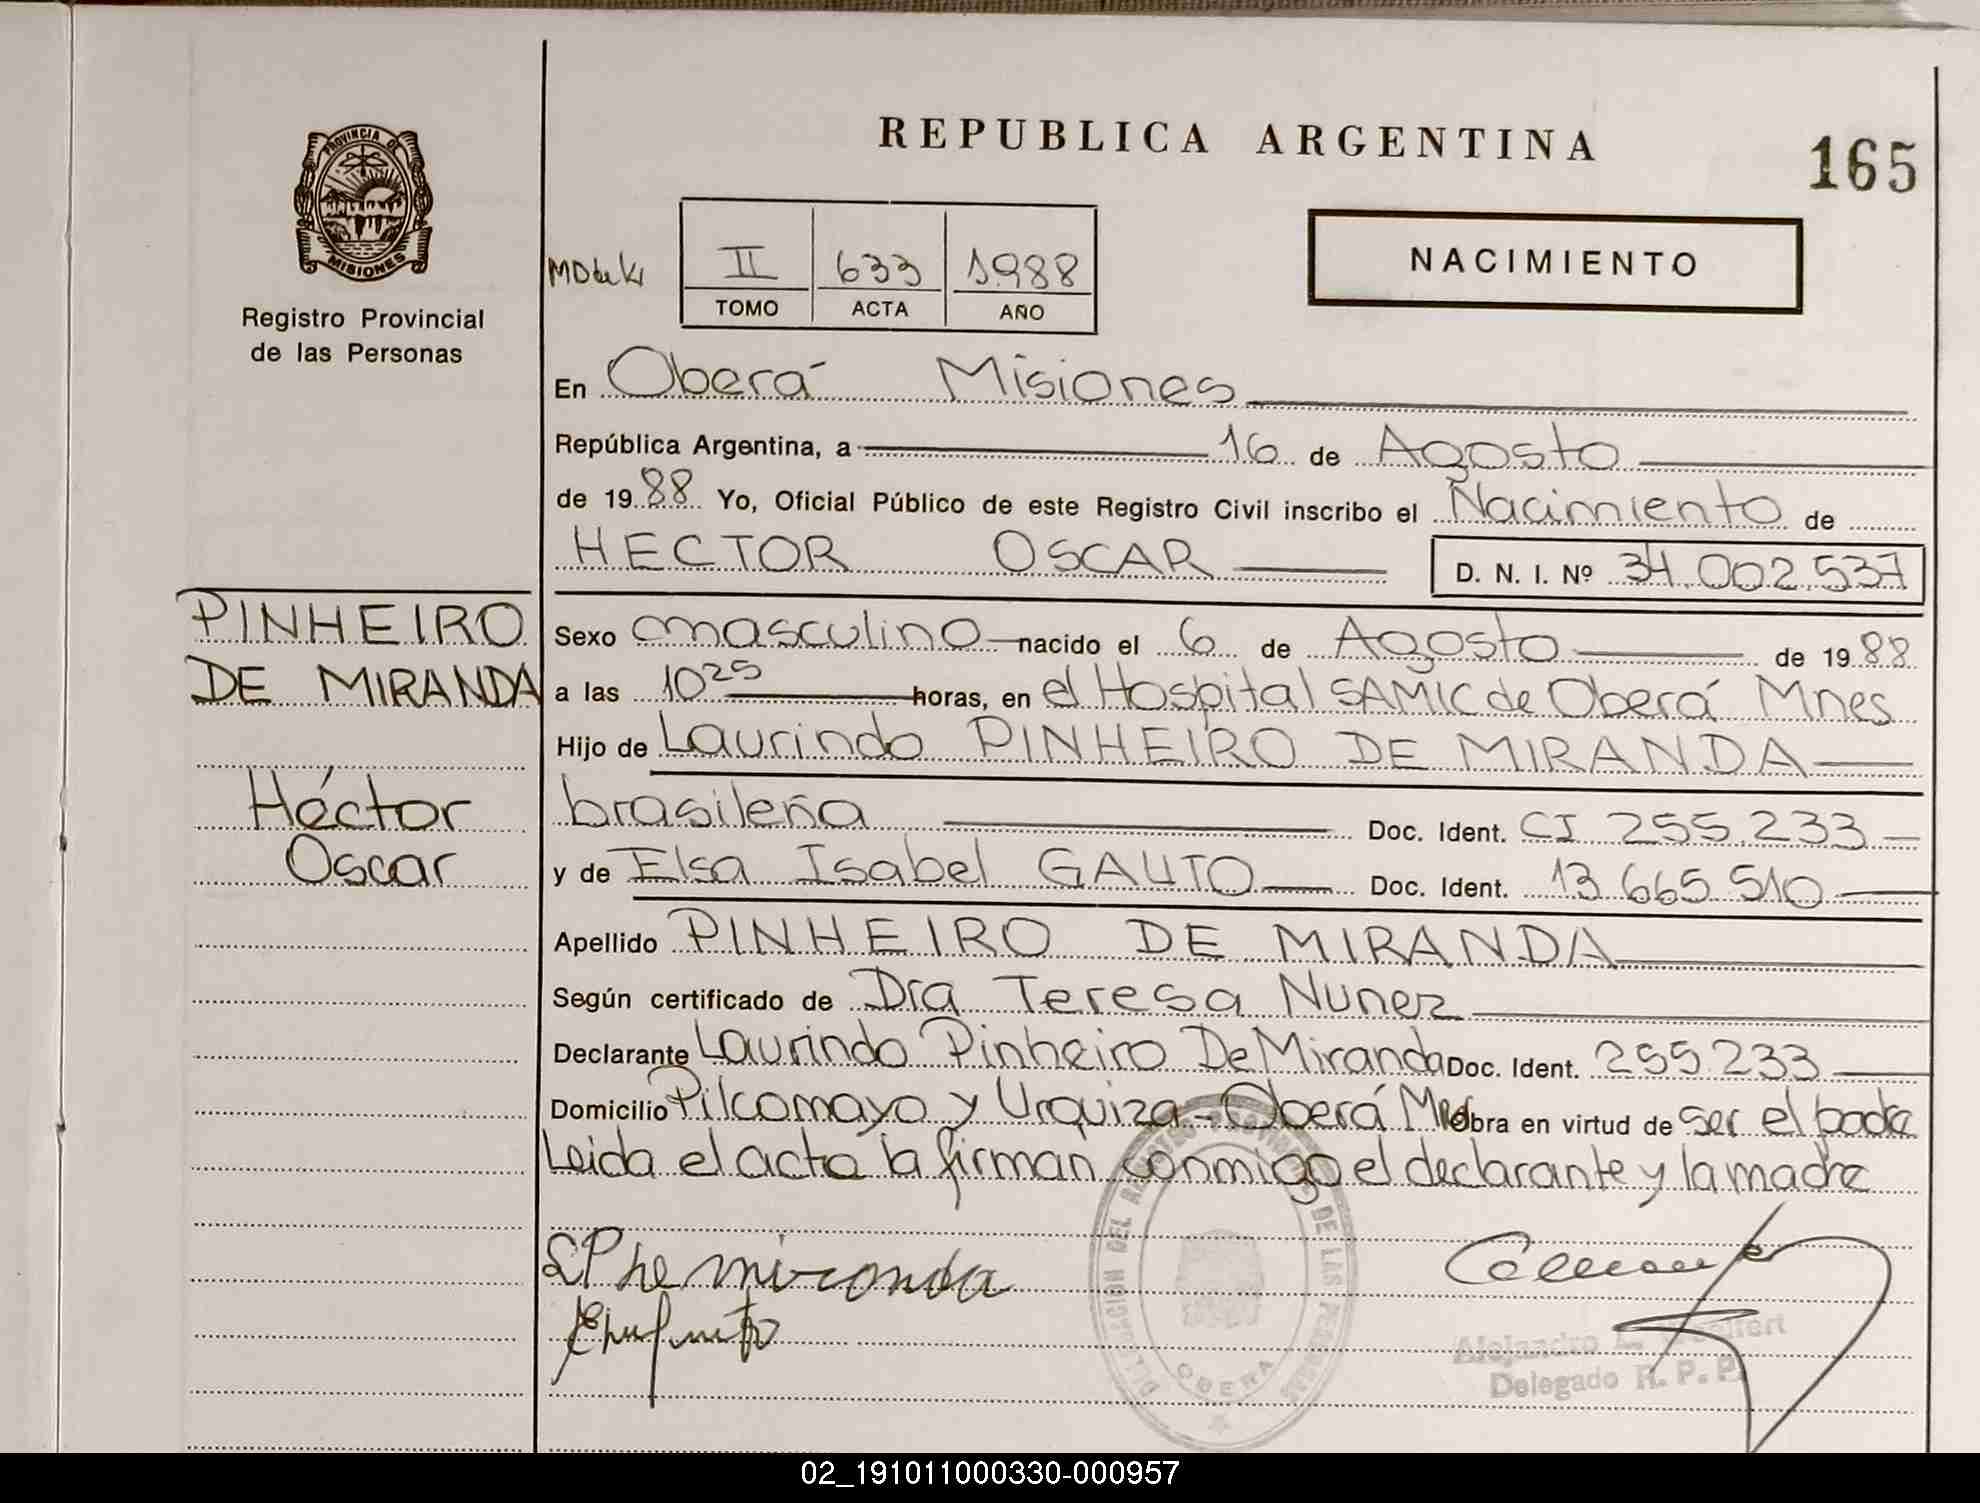 REPUBLICA ARGENTINA
165
PROVINCIA DE
MISIONES
Registro Provincial
de las Personas
II
TOMO
633
ACTA
1988
AÑO
NACIMIENTO
En Oberá Misiones
República Argentina, a 16 de Agosto
de 1988 Yo, Oficial Público de este Registro Civil inscribo el Nacimiento de
HECTOR OSCAR D. N. I. Nº 34.002.537
PINHEIRO
DE MIRANDA
Héctor
Oscar
Sexo masculino nacido el 6 de Agosto de 1988
a las 10 25 horas, en el Hospital SAMIC de Oberá Mnes
Hijo de Laurindo PINHEIRO DE MIRANDA
brasileña Doc. Ident. CI 255.233
y de Elsa Isabel GAUTO Doc. Ident. 13.665.510
Apellido PINHEIRO DE MIRANDA
Según certificado de Dra Teresa Nunez
Declarante Laurindo Pinheiro De Miranda Doc. Ident. 255.233
Domicilio Pilcomayo y Urquiza - Oberá Mnes Obra en virtud de ser el padre
Leida el acta la firman conmigo el declarante y la madre
miranda
DELEGACION DEL REGISTRO PROVINCIAL DE LAS PERSONAS
OBERA
Alejandro
Delegado R. P. P.
02_191011000330-000957